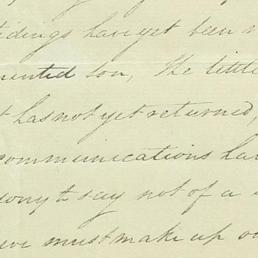 tidings have yet been
mented son, The little
has not yet returned,
communications ha
sorry to say not of a
we must make up o